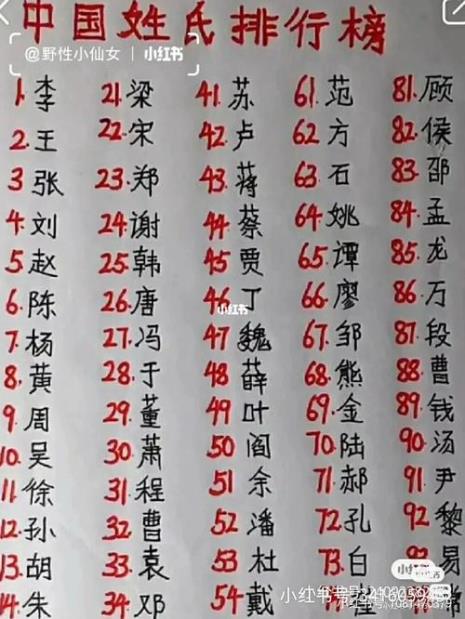 中国姓氏排行榜
@野性小仙女 | 小红书
1.李 21.梁 41.苏 61.范 81.顾
2.王 22.宋 42.卢 62方 82.侯
3张 23.郑 43.蒋 63.石 83.邵
4.刘 24谢 44.蔡 64.姚 84.孟
5.赵 25.韩 45贾 65.谭 85.龙
6.陈 26.唐 46丁 66.廖 86.万
小红书
7.杨 27.冯 47魏 67.邹 87.段
8.黄 28.于 48薛 68.熊 88.曹
9.周 29.董 49叶 69.金 89.钱
10.吴 30.萧 50阎 70.陆 90.汤
11.徐 31.程 51余 71.郝 91.尹
12.孙 32.曹 52潘 72.孔 92黎
13.胡 33.袁 53杜 73.白 易
小红书
14.朱 34.邓 54.戴
小红书号